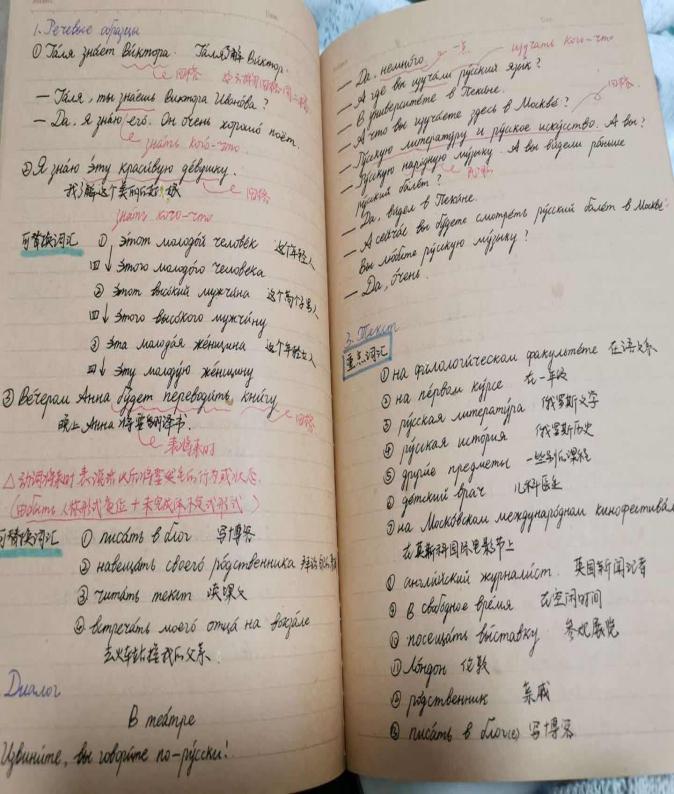 1. Речевые образцы
① Га́ля зна́ет Ви́ктора. Галя了解 Виктор.
四格
— Га́ля, ты зна́ешь Виктора Ивано́ва?
— Да, я зна́ю его́. Он о́чень хорошо́ поёт.
знать кого-что
② Я зна́ю э́ту краси́вую де́вушку.
四格
我了解这个美丽的姑娘
знать кого-что
可替换词汇 ① э́тот молодо́й челове́к 这个年轻人
四↓ э́того молодо́го челове́ка
② э́тот высо́кий мужчи́на 这个高个子男人
四↓ э́того высо́кого мужчи́ну
③ э́та молода́я же́нщина 这个年轻女人
四↓ э́ту молоду́ю же́нщину
③ Ве́чером Анна бу́дет переводи́ть кни́гу
四格
晚上 Анна 将要翻译书.
表将来时
△ 动词将来时 表演示以后将要发生的行为或状态.
(由быть人称形式变位+未完成体不定式形式)
可替换词汇 ① писа́ть в блог 写博客
② навеща́ть своего́ ро́дственника
③ чита́ть текст 读课文
④ встреча́ть моего́ отца́ на вокза́ле
去火车站接我的父亲.
Диалог
В теа́тре
Извини́те, вы говори́те по-ру́сски?
— Да, немно́го. 一点
изучать кого-что
— А где вы изуча́ли ру́сский язы́к?
— В университе́те в Пеки́не.
— А что вы изуча́ете здесь в Москве́?
四格
— Ру́сскую литерату́ру и ру́сское иску́сство. А вы?
— Ру́сскую наро́дную му́зыку. А вы ви́дели ра́ньше
ру́сский бале́т?
— Да, видел в Пекине.
— А сейча́с вы бу́дете смотре́ть ру́сский балет в Москве́.
Вы лю́бите ру́сскую му́зыку?
— Да, о́чень.
3. Текст
重点词汇
① на филологи́ческом факульте́те 在语文系
② на пе́рвом ку́рсе 在一年级
③ ру́сская литерату́ра 俄罗斯文学
④ ру́сская исто́рия 俄罗斯历史
⑤ други́е предме́ты 一些别的课程
⑥ де́тский врач 儿科医生
⑦ на Моско́вском междунаро́дном кинофестива́л
在莫斯科国际电影节上
⑧ англи́йский журнали́ст. 英国新闻记者
⑨ в свобо́дное вре́мя 在空闲时间
⑩ посеща́ть вы́ставку 参观展览
⑪ Ло́ндон 伦敦
⑫ ро́дственник 亲戚
⑬ писа́ть в бло́г(е) 写博客